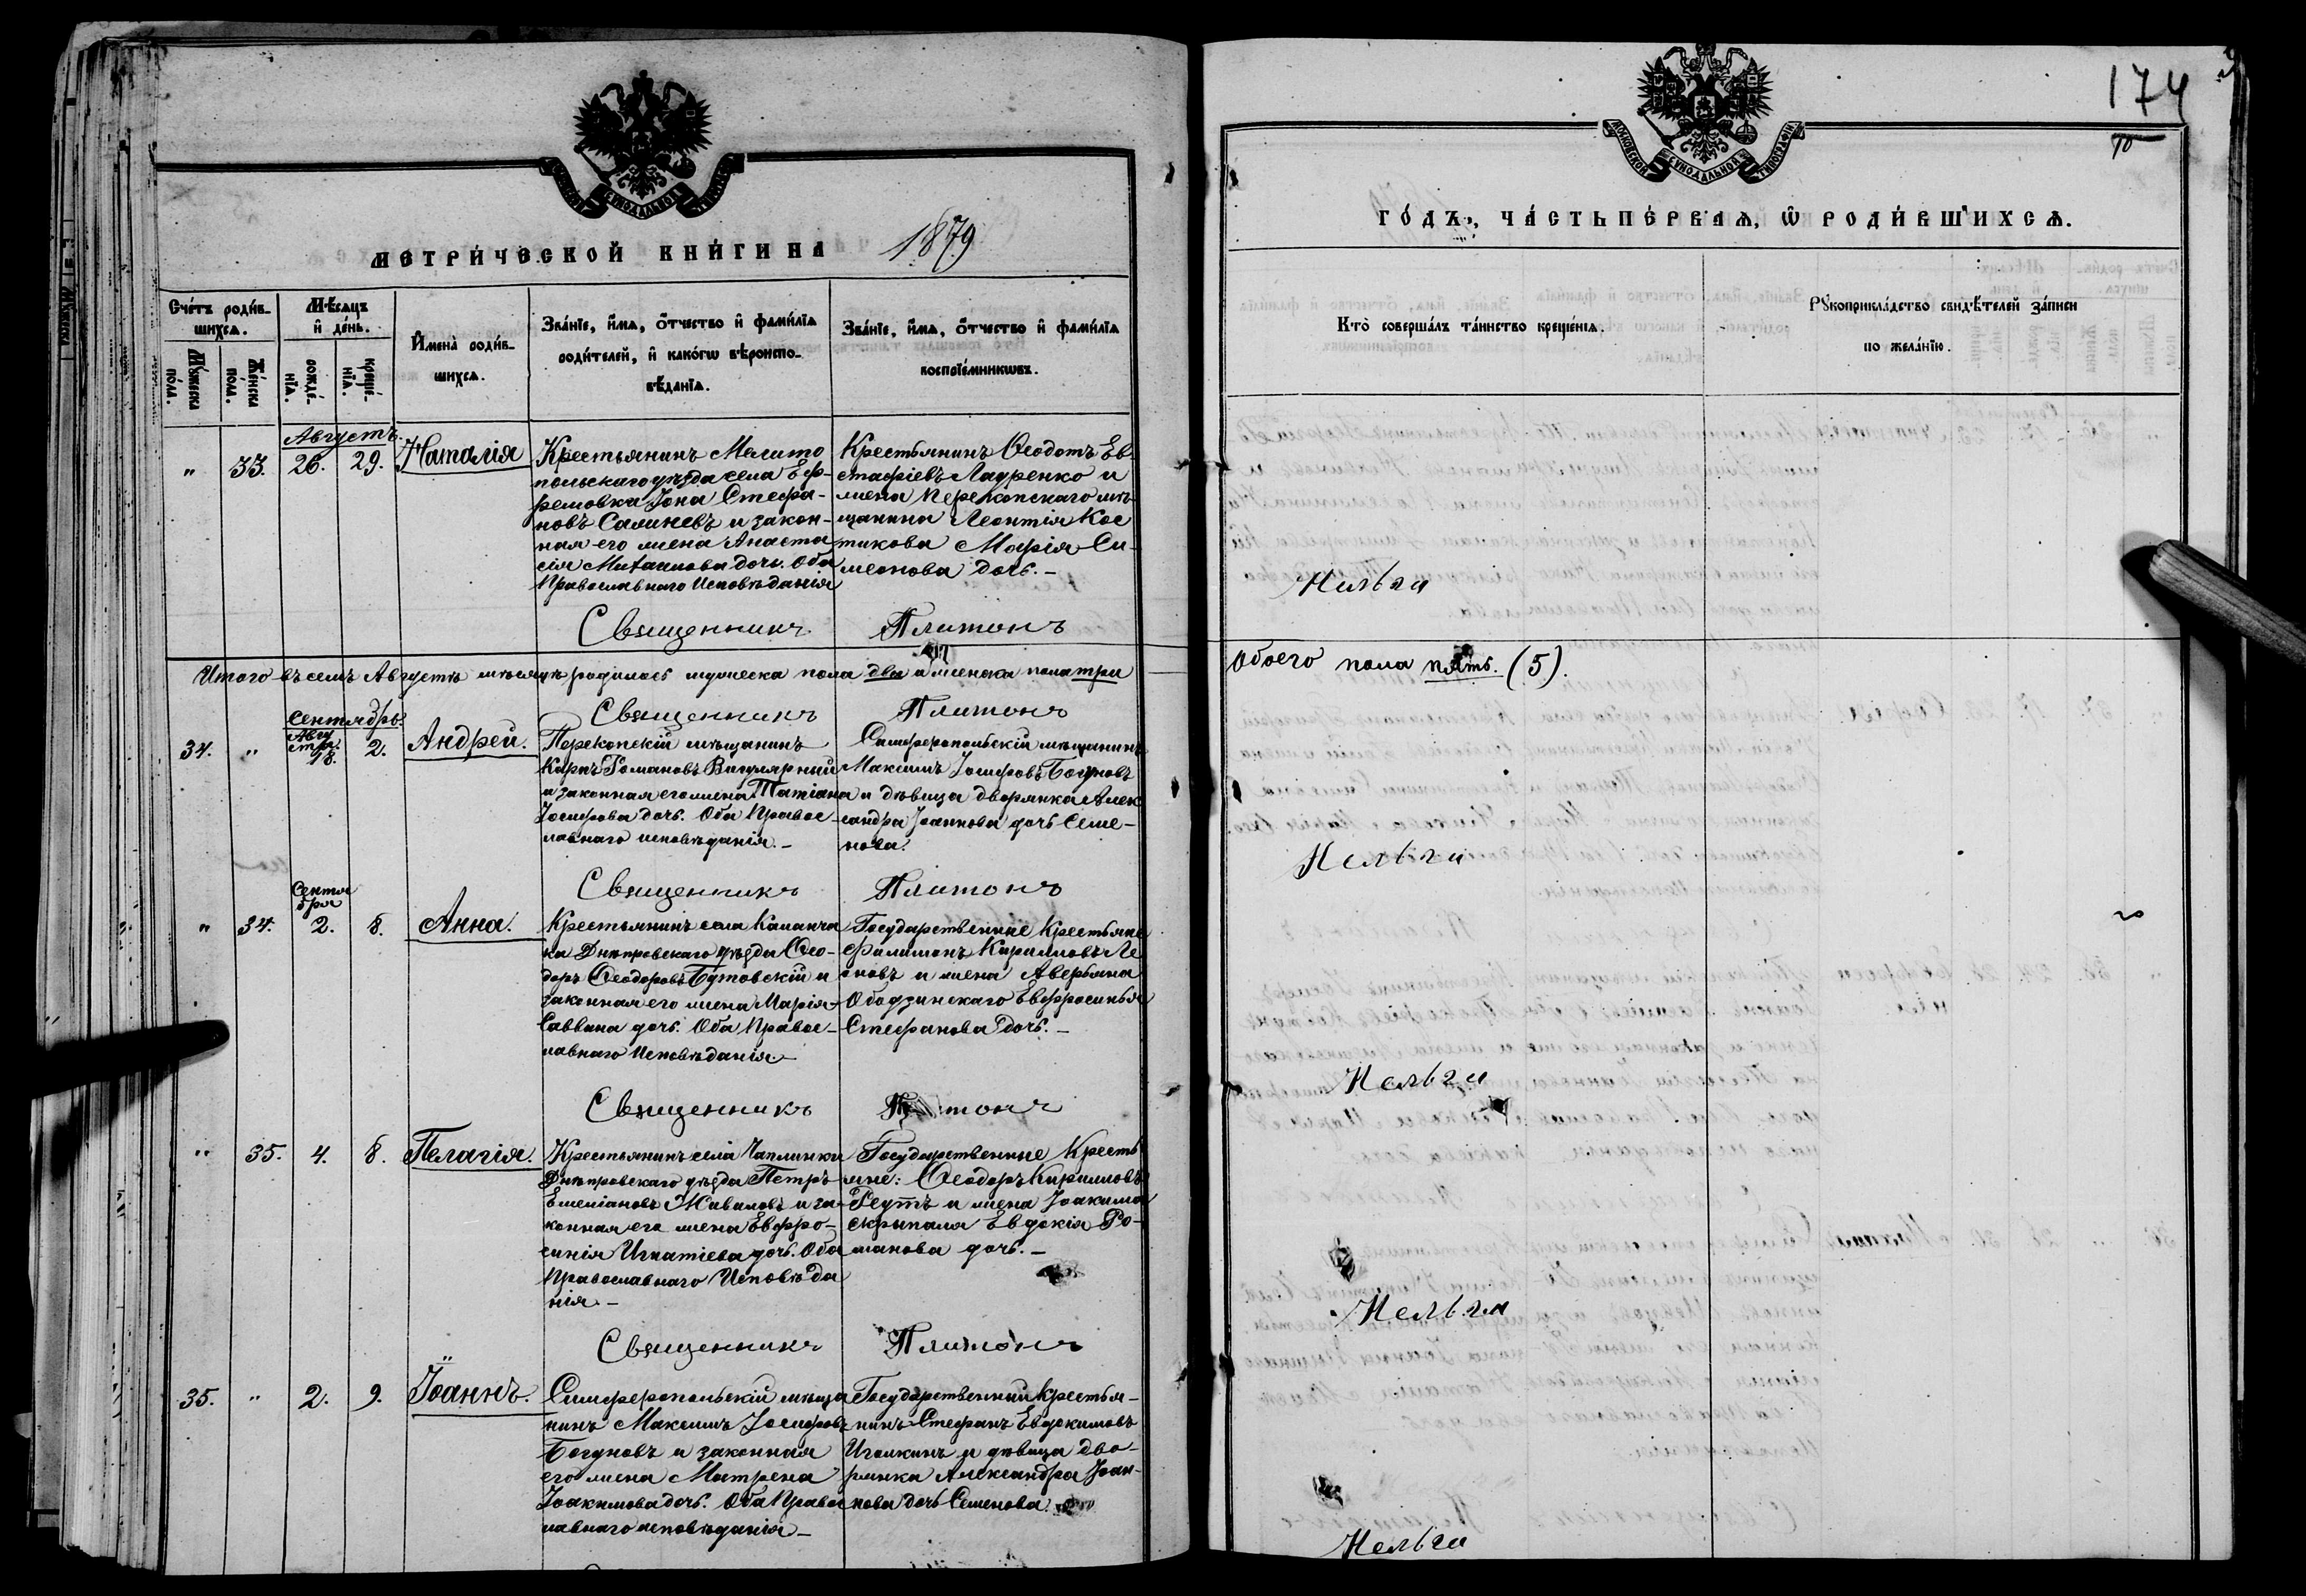 МОСКОВСКОЙ СѴНОДАЛЬНОЙ ТИПОГРАФІИ
МЕТРИ́ЧЕСКОЙ КНИ́ГИ НА 1879
Сче́тъ роди́вшихсѧ.
Мꙋ́жеска по́ла.
Же́нска по́ла.
Мѣ́сѧцъ и҆ де́нь.
рожде́нїѧ.
креще́нїѧ.
И҆мена̀ роди́вшихсѧ.
Зва́нїе, и҆́мѧ, ѻ҆́тчество и҆ фами́лїѧ
роди́телей, и҆ како́гѡ вѣроиспо-
вѣ́данїѧ.
Зва́нїе, и҆́мѧ, ѻ҆́тчество и҆ фами́лїѧ
воспрїе́мникѡвъ.
Августъ.
" 33. 26. 29. Наталія
Крестьянинъ Мелито
польскаго уѣзда села Еф-
ремовка Іона Стефа-
новъ Салиневъ и закон-
ная его жена Анаста
сія Михаилова дочь. Оба
Православнаго Исповѣданія
Крестьянинъ Ѳеодотъ Ев-
стафіевъ Лавренко и
жена Перекопскаго мѣ-
щанина Леонтія Кос
тикова Марія Си-
меонова дочь. –
Священникъ Платонъ
Итого въ семъ Августѣ мѣсяцѣ родилось мужеска пола два а женска пола три
Священникъ Платонъ
Сентябрь.
34. " Авгу
ста.
18. 2. Андрей.
Перекопскій мѣщанинъ
Карпъ Романовъ Вигулярный
и законная его жена Татіана
Іосифова дочь. Оба Правос-
лавнаго исповѣданія. –
Симферопольскій мѣщанинъ
Максимъ Іосифовъ Богуновъ
и дѣвица дворянка Алек
сандра Іоаннова дочь Семе-
нова.
Священникъ Платонъ
Сентя
бря
" 34. 2. 8. Анна.
Крестьянинъ села Каланча
ка Днѣпровскаго уѣзда Ѳео-
доръ Ѳеодоровъ Бутовскій и
законная его жена Марія
Саввина дочь. Оба Правос-
лавнаго Исповѣданія –
Государственные Крестьяне
Филимонъ Кирилловъ Ле
оновъ и жена Аверьяна
Ободзинскаго Евфросинья
Стефанова дочь. –
Священникъ Платонъ
" 35. 4. 8. Пелагія.
Крестьянинъ села Чаплинки
Днѣпровскаго уѣзда Петръ
Емеліановъ Живаловъ и за-
конная его жена Евфро-
синія Игнатіева дочь. Оба
Православнаго Исповѣда
нія. –
Государственные Кресть
яне: Ѳеодоръ Кирилловъ
Реутъ и жена Іоакима
Скрыпаля Евдокія Ро-
манова дочь. –
Священникъ Платонъ
35. " 2. 9. Іоаннъ.
Симферопольскій мѣща
нинъ Максимъ Іосифовъ
Богуновъ и законная
его жена Матрена
Іоакимова дочь. Оба Правос
лавнаго исповѣданія –
Государственный крестья-
нинъ Стефанъ Евдокимовъ
Иголкинъ и дѣвица дво-
рянка Александра Іоан-
нова дочь Семенова.
174
МОСКОВСКОЙ СѴНОДАЛЬНОЙ ТИПОГРАФІИ
ГО́ДЪ, ЧА́СТЬ ПЕ́РВАѦ, Ѡ҆ РОДИ́ВШИХСѦ.
Кто̀ соверша́лъ та́инство креще́нїѧ.
Рꙋкоприкла́дство свидѣ́телей за́писи
по жела́нїю.
Нельга
Обоего пола пять. (5).
Нельга
Нельга
Нельга
Нельга